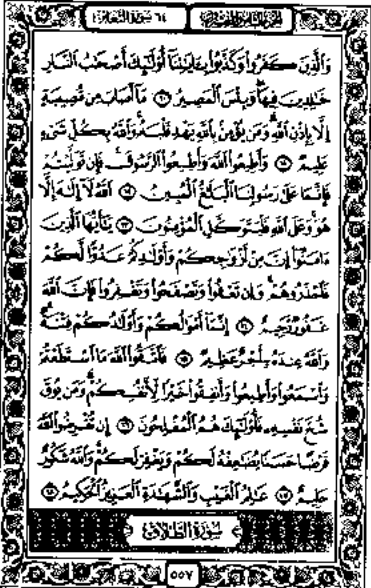 الجزء الثامن والعشرون ٦٤ سورة التغابن
وَالَّذِينَ كَفَرُوا وَكَذَّبُوا بِـَٔايَـٰتِنَآ أُو۟لَـٰٓئِكَ أَصْحَـٰبُ النَّارِ
خَـٰلِدِينَ فِيهَا وَبِئْسَ الْمَصِيرُ ١٠ مَآ أَصَابَ مِن مُّصِيبَةٍ
إِلَّا بِإِذْنِ اللَّهِ وَمَن يُؤْمِنۢ بِاللَّهِ يَهْدِ قَلْبَهُۥ وَاللَّهُ بِكُلِّ شَىْءٍ
عَلِيمٌ ١١ وَأَطِيعُوا اللَّهَ وَأَطِيعُوا الرَّسُولَ فَإِن تَوَلَّيْتُمْ
فَإِنَّمَا عَلَىٰ رَسُولِنَا الْبَلَـٰغُ الْمُبِينُ ١٢ اللَّهُ لَآ إِلَـٰهَ إِلَّا
هُوَ وَعَلَى اللَّهِ فَلْيَتَوَكَّلِ الْمُؤْمِنُونَ ١٣ يَـٰٓأَيُّهَا الَّذِينَ
ءَامَنُوٓا إِنَّ مِنْ أَزْوَٰجِكُمْ وَأَوْلَـٰدِكُمْ عَدُوًّا لَّكُمْ
فَاحْذَرُوهُمْ وَإِن تَعْفُوا وَتَصْفَحُوا وَتَغْفِرُوا فَإِنَّ اللَّهَ
غَفُورٌ رَّحِيمٌ ١٤ إِنَّمَآ أَمْوَٰلُكُمْ وَأَوْلَـٰدُكُمْ فِتْنَةٌ
وَاللَّهُ عِندَهُۥٓ أَجْرٌ عَظِيمٌ ١٥ فَاتَّقُوا اللَّهَ مَا اسْتَطَعْتُمْ
وَاسْمَعُوا وَأَطِيعُوا وَأَنفِقُوا خَيْرًا لِّأَنفُسِكُمْ وَمَن يُوقَ
شُحَّ نَفْسِهِۦ فَأُو۟لَـٰٓئِكَ هُمُ الْمُفْلِحُونَ ١٦ إِن تُقْرِضُوا اللَّهَ
قَرْضًا حَسَنًا يُضَـٰعِفْهُ لَكُمْ وَيَغْفِرْ لَكُمْ وَاللَّهُ شَكُورٌ
حَلِيمٌ ١٧ عَـٰلِمُ الْغَيْبِ وَالشَّهَـٰدَةِ الْعَزِيزُ الْحَكِيمُ ١٨
سُورَةُ الطَّلَاقِ
٥٥٧